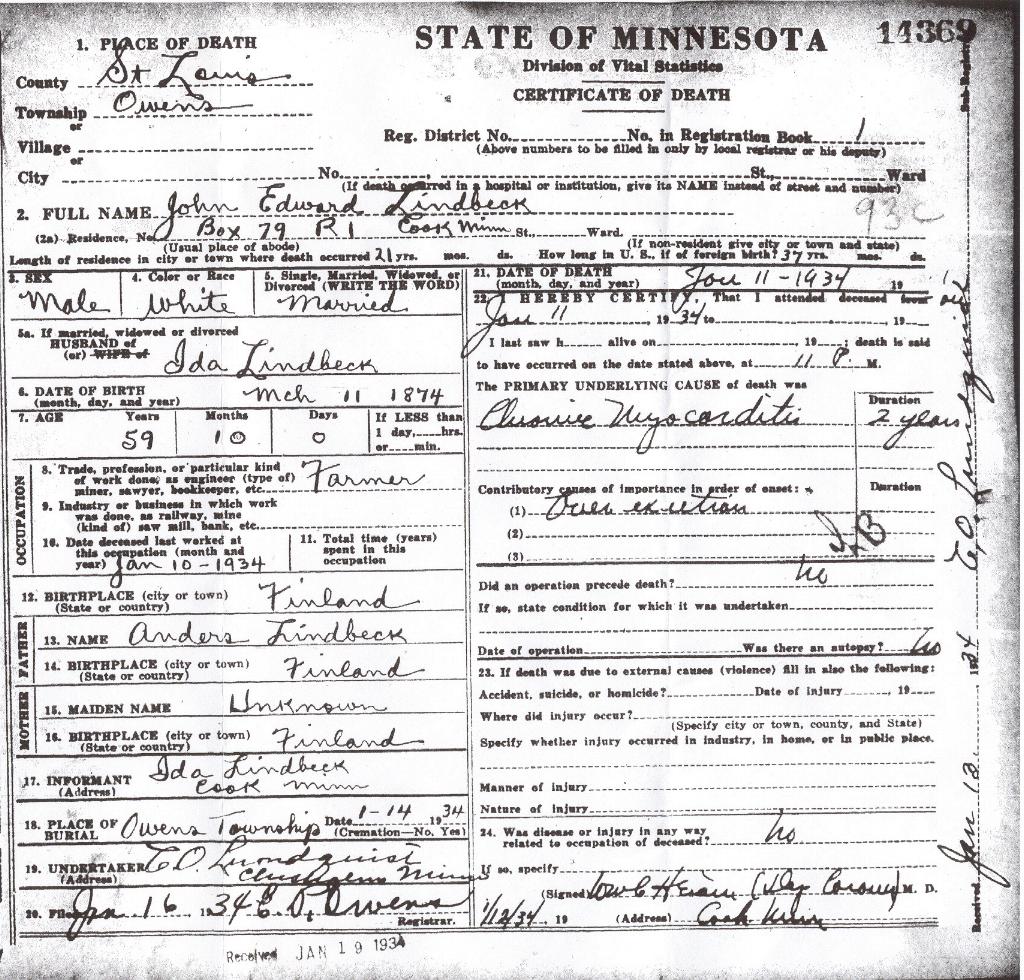 STATE OF MINNESOTA
14369
Division of Vital Statistics
CERTIFICATE OF DEATH
1. PLACE OF DEATH
County St Louis
Township Owens
or
Village
or
City No. St., Ward
Reg. District No. No. in Registration Book 1
(Above numbers to be filled in only by local registrar or his deputy)
(If death occurred in a hospital or institution, give its NAME instead of street and number)
2. FULL NAME John Edward Lindbeck
93c
(2a) Residence, No. Box 79 R1 Cook Minn St., Ward.
(Usual place of abode) (If non-resident give city or town and state)
Length of residence in city or town where death occurred 21 yrs. mos. ds. How long in U. S., if of foreign birth? 37 yrs. mos. ds.
3. SEX
Male
4. Color or Race
White
5. Single, Married, Widowed, or
Divorced (WRITE THE WORD)
Married
5a. If married, widowed or divorced
HUSBAND of
(or) WIFE of
Ida Lindbeck
6. DATE OF BIRTH
(month, day, and year)
Mch 11 1874
7. AGE
Years
59
Months
10
Days
0
If LESS than
1 day, hrs.
or min.
OCCUPATION
8. Trade, profession, or particular kind
of work done, as engineer (type of)
miner, sawyer, bookkeeper, etc. Farmer
9. Industry or business in which work
was done, as railway, mine
(kind of) saw mill, bank, etc.
10. Date deceased last worked at
this occupation (month and
year) Jan 10-1934
11. Total time (years)
spent in this
occupation
12. BIRTHPLACE (city or town)
(State or country)
Finland
FATHER
13. NAME Anders Lindbeck
14. BIRTHPLACE (city or town)
(State or country)
Finland
MOTHER
15. MAIDEN NAME Unknown
16. BIRTHPLACE (city or town)
(State or country)
Finland
17. INFORMANT Ida Lindbeck
(Address) Cook Minn
18. PLACE OF
BURIAL
Owens Township Date 1-14 1934
(Cremation—No. Yes)
19. UNDERTAKER C O Lundquist
(Address) Minn
20. Filed Jan 16 1934 Owens
Registrar.
21. DATE OF DEATH
(month, day, and year) Jan 11-1934 19
22. I HEREBY CERTIFY, That I attended deceased from
Jan 11, 1934 to , 19
I last saw h alive on , 19 ; death is said
to have occurred on the date stated above, at 11 P. M.
The PRIMARY UNDERLYING CAUSE of death was
Duration
Chronic Myocarditis
2 years
Contributory causes of importance in order of onset:
Duration
(1) Over exertion
(2)
(3)
Did an operation precede death? no
If so, state condition for which it was undertaken
Date of operation Was there an autopsy? no
23. If death was due to external causes (violence) fill in also the following:
Accident, suicide, or homicide? Date of injury , 19
Where did injury occur?
(Specify city or town, county, and State)
Specify whether injury occurred in industry, in home, or in public place.
Manner of injury
Nature of injury
24. Was disease or injury in any way
related to occupation of deceased? no
If so, specify
(Signed) M. D.
1/12/34, 19 (Address) Cook Minn
Received Jan 12 1934
Received JAN 19 1934